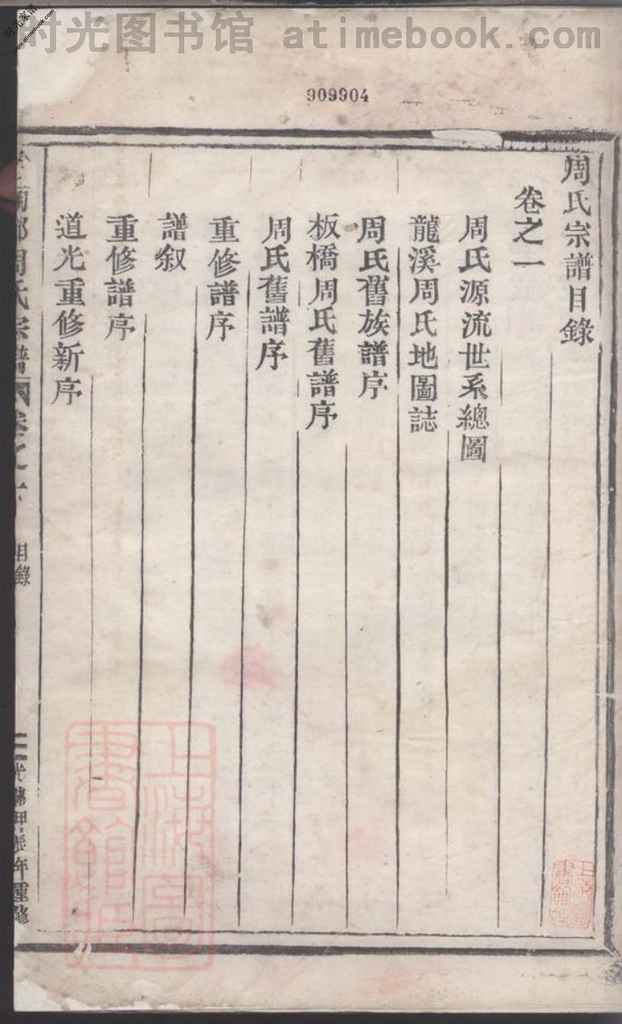 时光图书馆 atimebook.com
909904
周氏宗譜目錄
卷之一
周氏源流世系總圖
龍溪周氏地圖誌
周氏舊族譜序
板橋周氏舊譜序
周氏舊譜序
重修譜序
譜叙
重修譜序
道光重修新序
周氏宗譜
目錄
年重鐫
上海圖書館藏